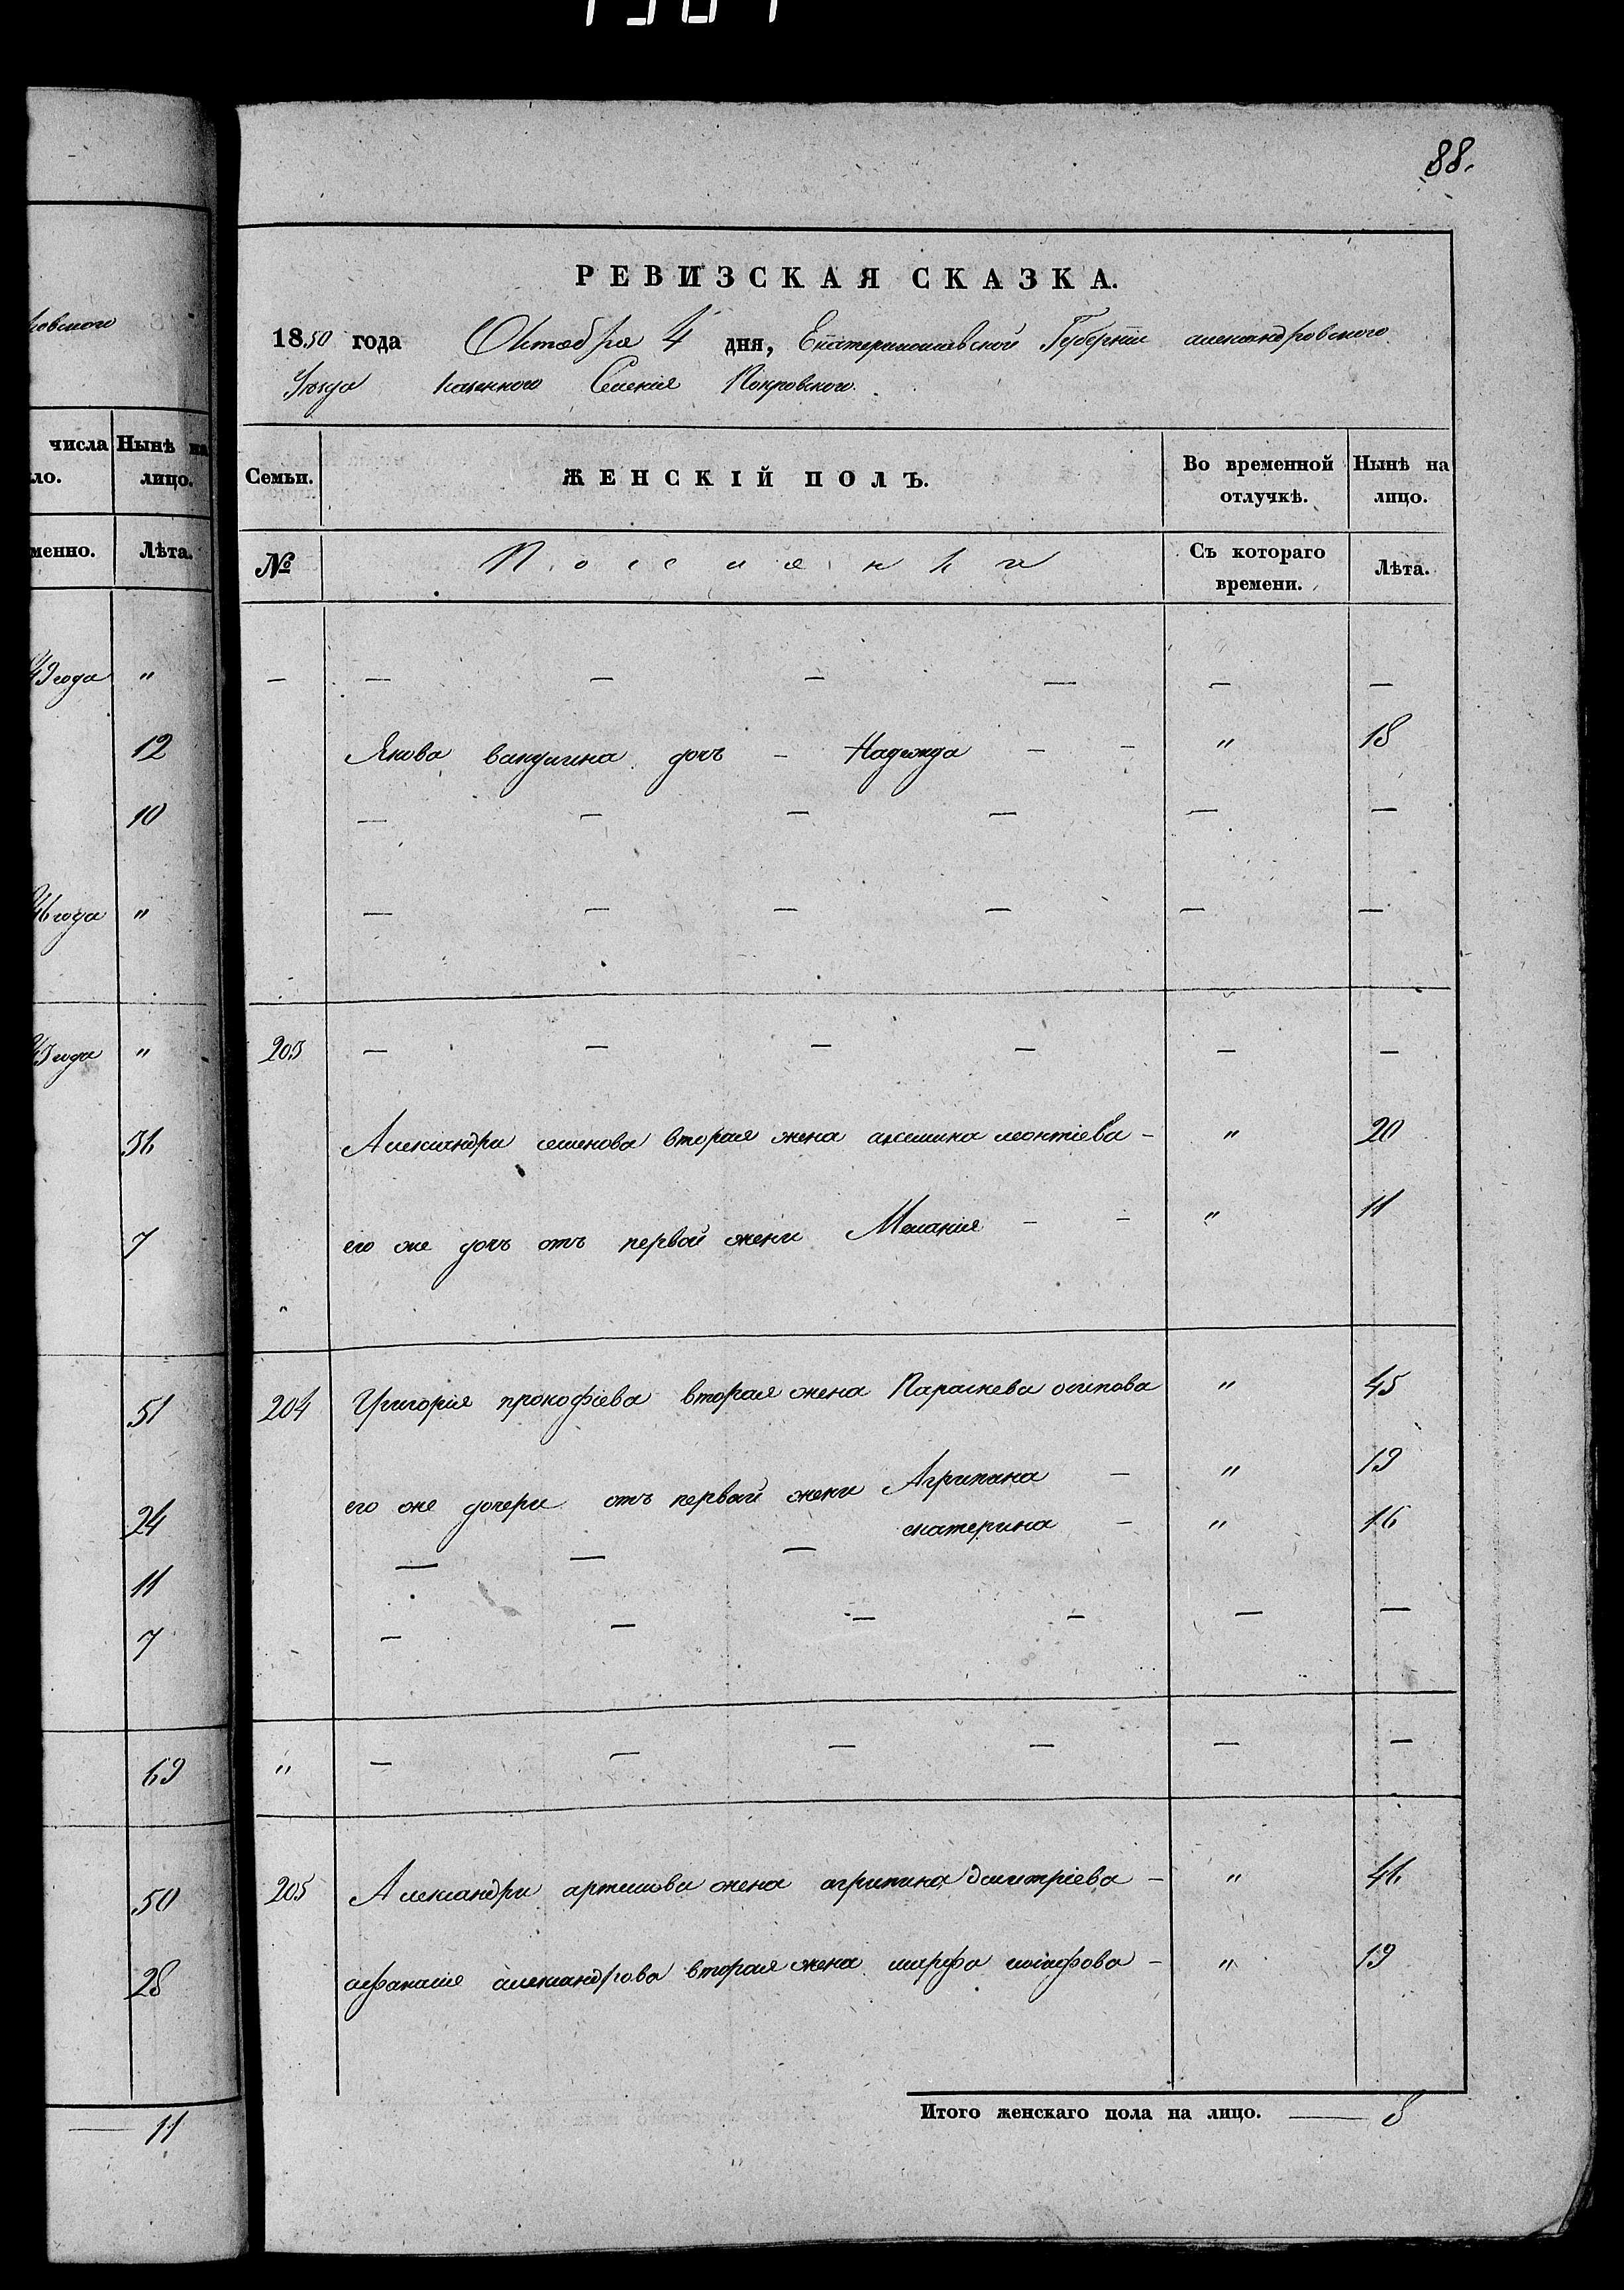 88.
РЕВИЗСКАЯ СКАЗКА.
1850 года Октября 4 дня, Екатеринославской Губернии александровского
Уезда казенного Селения Покровского.
числа Нынѣ на
ло. лицо.
менно. Лѣта.
Семьи. ЖЕНСКІЙ ПОЛЪ. Во временной отлучкѣ. Нынѣ на лицо.
№ Поселянки Съ котораго времени. Лѣта.
года "
— — — — — — —
12
Якова дочь - Надежда - - " 18
10
— — — — — —
46 года "
— — — — — —
года "
203 — — — — — —
31
Александра семенова вторая жена аксиния леонтіева - " 20
7
его же дочь отъ первой жени Меланія - - " 11
51
204 Григорія прокофіева вторая жена Параскева осипова " 45
24
его же дочери отъ первой жени Агрипина - " 19
екатерина - " 16
11
— — —
7
— — — — — —
69
" — — — — — —
50
205 Александра артемова жена агрипина дмитріева - " 41
28
афанасія александрова вторая жена марфа - " 19
— 11
Итого женскаго пола на лицо. — 8